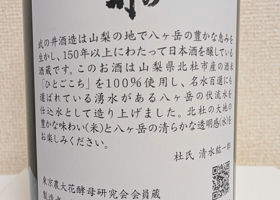 武の井酒造は山梨の地で八ヶ岳の豊かな恵みを
生かし、150年以上にわたって日本酒を醸している
酒蔵です。このお酒は山梨県北杜市産の酒米
「ひとごこち」を100%使用し、名水百選に
選ばれている湧水がある八ヶ岳の伏流水を
仕込水として造り上げました。北杜の大地の
豊かな味わい(米)と八ヶ岳の清らかな透明感(水)を
お楽しみください。
杜氏 清水紘一郎
東京農大花酵母研究会会員蔵